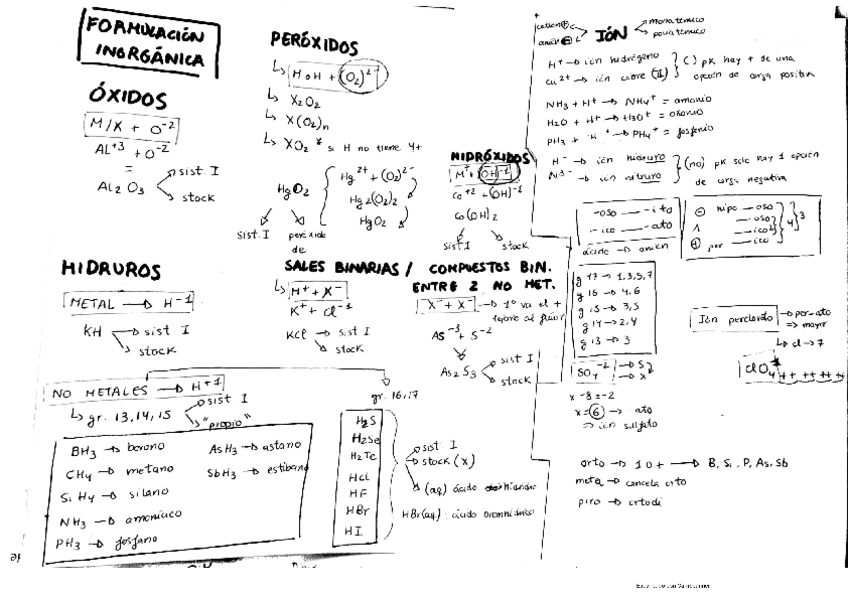 FORMULACIÓN
INORGÁNICA
ÓXIDOS
M/X + O⁻²
AL⁺³ + O⁻²
=
AL₂O₃
sist. I
stock
PERÓXIDOS
M o H + (O₂)²⁻
X₂O₂
X(O₂)n
XO₂ * si H no tiene 4+
HgO₂
Sist. I
peróxido
de
Hg²⁺ + (O₂)²⁻
Hg₂(O₂)₂
HgO₂
HIDRÓXIDOS
M⁺ + (OH)⁻¹
Co⁺² + (OH)⁻¹
Co(OH)₂
sist I
stock
HIDRUROS
METAL → H⁻¹
KH
sist I
stock
SALES BINARIAS / COMPUESTOS BIN.
ENTRE 2 NO MET.
M⁺ + X⁻
K⁺ + Cl⁻¹
KCl → sist I
stock
X⁻ + X⁻ → 1º va el +
lejano al flúor
AS⁻³ + S⁻²
As₂S₃
sist I
stock
NO METALES → H⁺¹
gr. 13, 14, 15
sist I
"propio"
BH₃ → borano
CH₄ → metano
SiH₄ → silano
NH₃ → amoniaco
PH₃ → fosfano
AsH₃ → astano
SbH₃ → estibano
gr. 16, 17
H₂S
H₂Se
H₂Te
HCl
HF
HBr
HI
sist I
stock (x)
(aq) ácido hídrico
HBr(aq): ácido bromhídrico
catión ⊕
anión ⊖
IÓN
monoatómico
poliatómico
H⁺ → ión hidrógeno
Cu²⁺ → ión cobre (II)
( ) pk hay + de una
opción de carga positiva
NH₃ + H⁺ → NH₄⁺ = amonio
H₂O + H⁺ → H₃O⁺ = oxonio
PH₃ + H⁺ → PH₄⁺ = fosfonio
H⁻ → ión hidruro
N³⁻ → ión nitruro
(no) pk solo hay 1 opción
de carga negativa
-oso — -ito
-ico — -ato
ácido → anión
⊖ hipo — oso
— oso
— ico
⊕ per — ico
4
3
g 17 → 1, 3, 5, 7
g 16 → 4, 6
g 15 → 3, 5
g 14 → 2, 4
g 13 → 3
SO₄⁻²
x - 8 = -2
x = 6 → ato
⇒ ión sulfato
Ión perclorato
per-ato
⇒ mayor
cl → 7
ClO₄⁻
orto → 1 O + → B, Si, P, As, Sb
meta → cancela orto
piro → ortodi